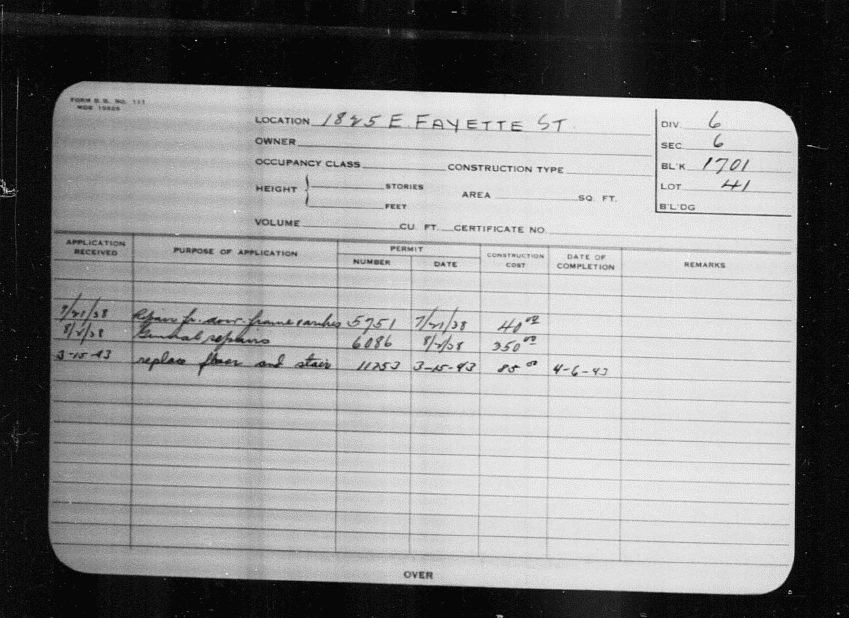 FORM B. B. NO. 111
MDS 15825
LOCATION 1825 E. FAYETTE ST.
OWNER
OCCUPANCY CLASS CONSTRUCTION TYPE
HEIGHT { STORIES AREA SQ. FT.
FEET
VOLUME CU. FT. CERTIFICATE NO.
DIV. 6
SEC. 6
BL'K 1701
LOT 41
B'L'DG
APPLICATION RECEIVED PURPOSE OF APPLICATION PERMIT NUMBER DATE CONSTRUCTION COST DATE OF COMPLETION REMARKS
7/21/38 Repair fr. door frame 5751 7/21/38 40 00
8/2/38 General repairs 6086 8/2/38 350 00
3-15-43 replace floor and stair 11253 3-15-43 85 00 4-6-43
OVER